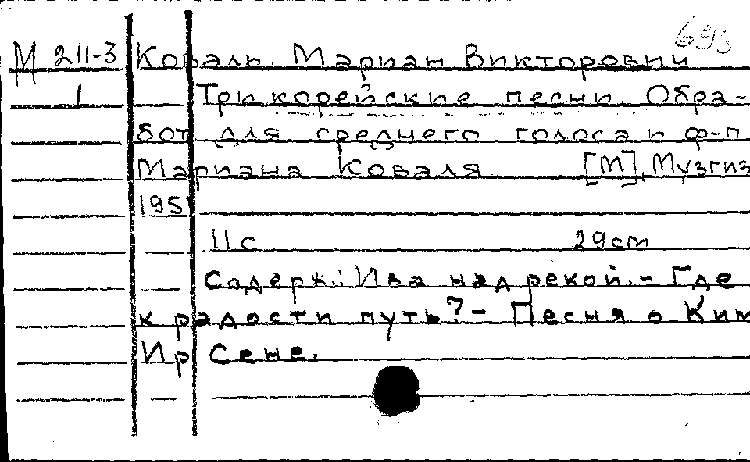 693
М 211-3 Коваль Мариан Викторович
1 Три корейские песни. Обра-
бот для среднего голоса и ф-п
Мариана Коваля [М], Музгиз
195
11 с 29 cm
Содерж.: Ива над рекой. - Где
к радости путь? - Песня о Ким
Ир Сене.